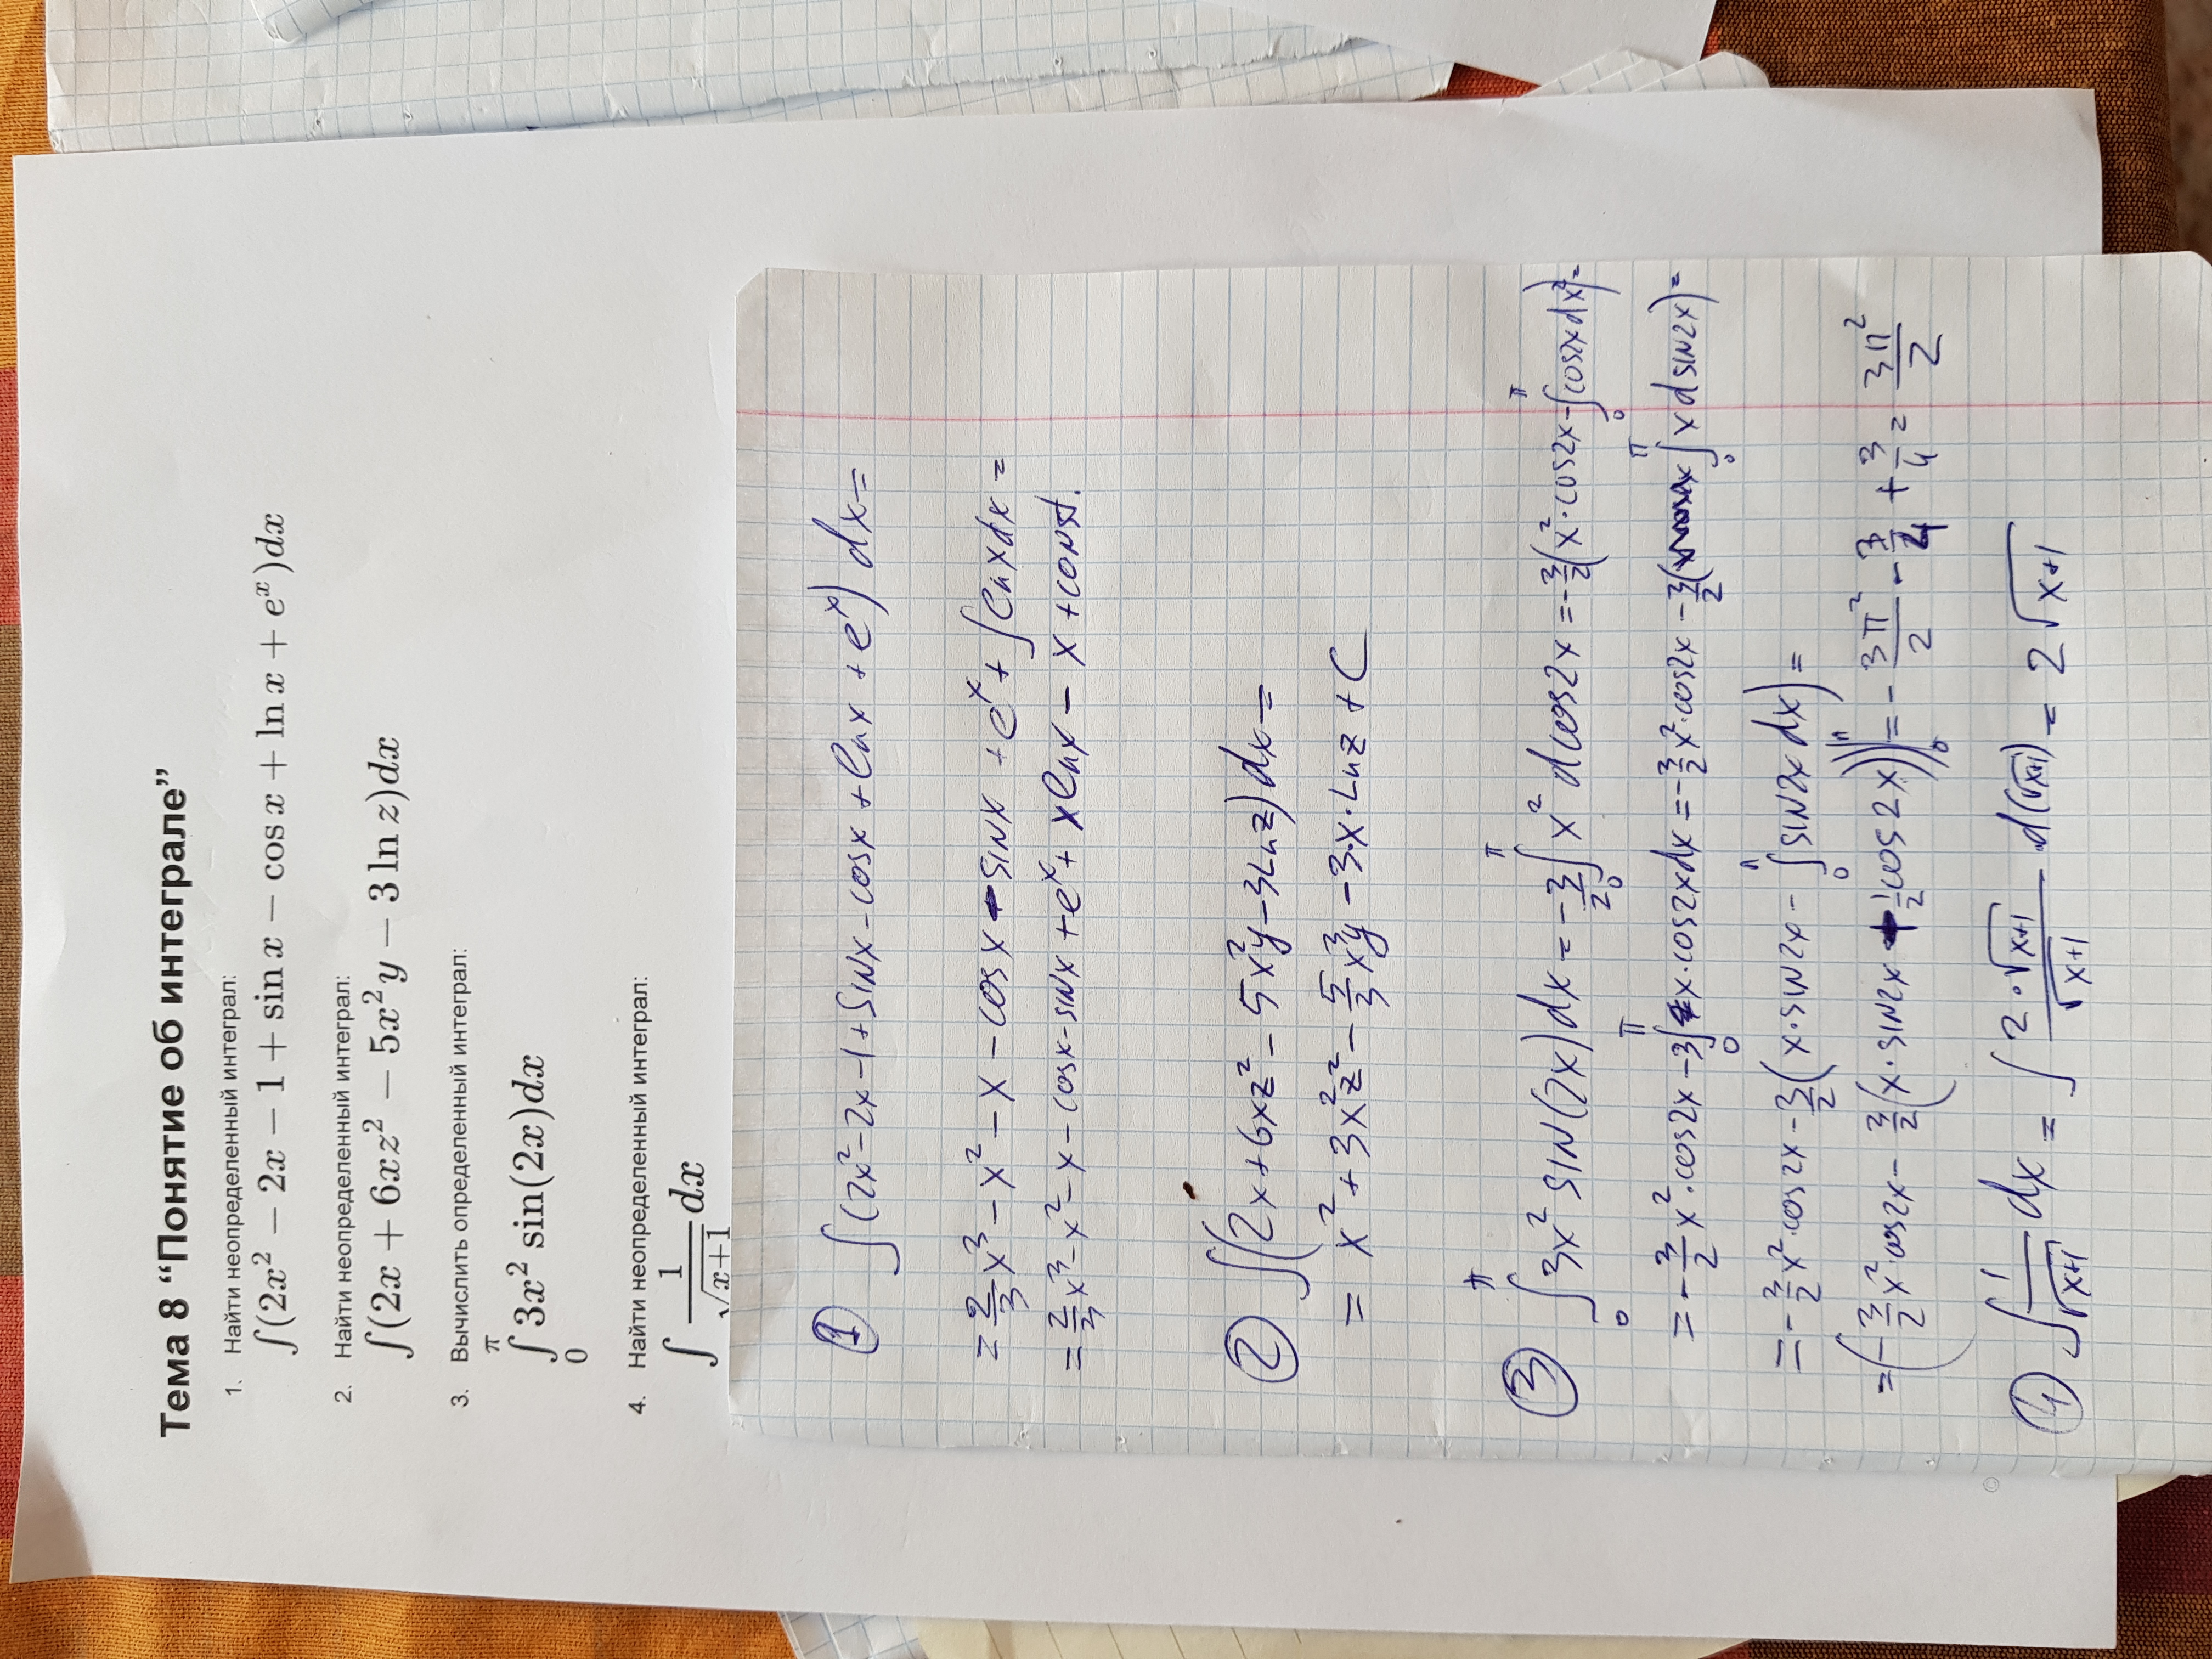 Тема 8 “Понятие об интеграле”
1. Найти неопределенный интеграл:
∫(2x² − 2x − 1 + sin x − cos x + ln x + eˣ)dx
2. Найти неопределенный интеграл:
∫(2x + 6xz² − 5x²y − 3 ln z)dx
3. Вычислить определенный интеграл:
π
∫ 3x² sin(2x)dx
0
4. Найти неопределенный интеграл:
∫ 1/√(x+1) dx
① ∫(2x²−2x−1+sinx−cosx+lnx+eˣ) dx=
= 2/3 x³ − x² − x − cosx − sinx + eˣ + ∫lnxdx =
= 2/3 x³ − x² − x − cosx − sinx + eˣ + xlnx − x + const.
② ∫(2x+6xz² − 5x²y − 3Lnz)dx=
= x² + 3x²z² − 5/3 x³y − 3·x·Lnz + C
③ ∫₀^π 3x² sin(2x)dx = −3/2 ∫₀^π x² dcos2x = −3/2(x²·cos2x − ∫₀^π cos2x dx²)=
= −3/2 x²·cos2x − 3∫₀^π x·cos2xdx = −3/2 x²·cos2x − 3/2(∫₀^π x d sin2x)=
= −3/2 x²·cos2x − 3/2(x·sin2x − ∫₀^π sin2x dx)=
= (−3/2 x² cos2x − 3/2(x·sin2x + 1/2 cos2x))|₀^π = − 3π²/2 − 3/4 + 3/4 = 3π²/2
④ ∫ 1/√(x+1) dx = ∫ 2·√(x+1)/√(x+1) ·d(√(x+1)) = 2√(x+1)